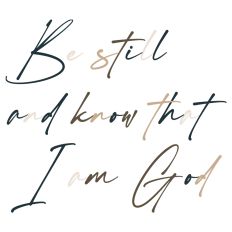 Be still
and know that
I am God